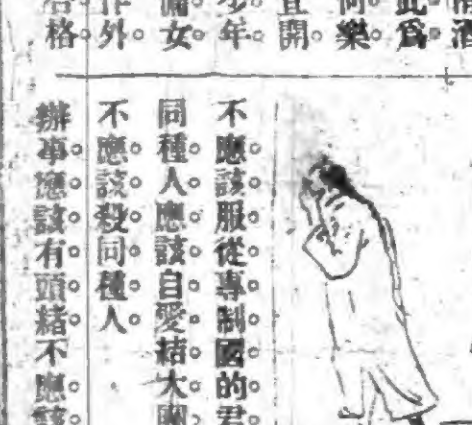 酒
此爲
何樂
宜開
少年
傭女
作外
格
不應該服從專制國的君
同種人應該自愛結大團
不應該殺同種人
辦事應該有頭緒不應該